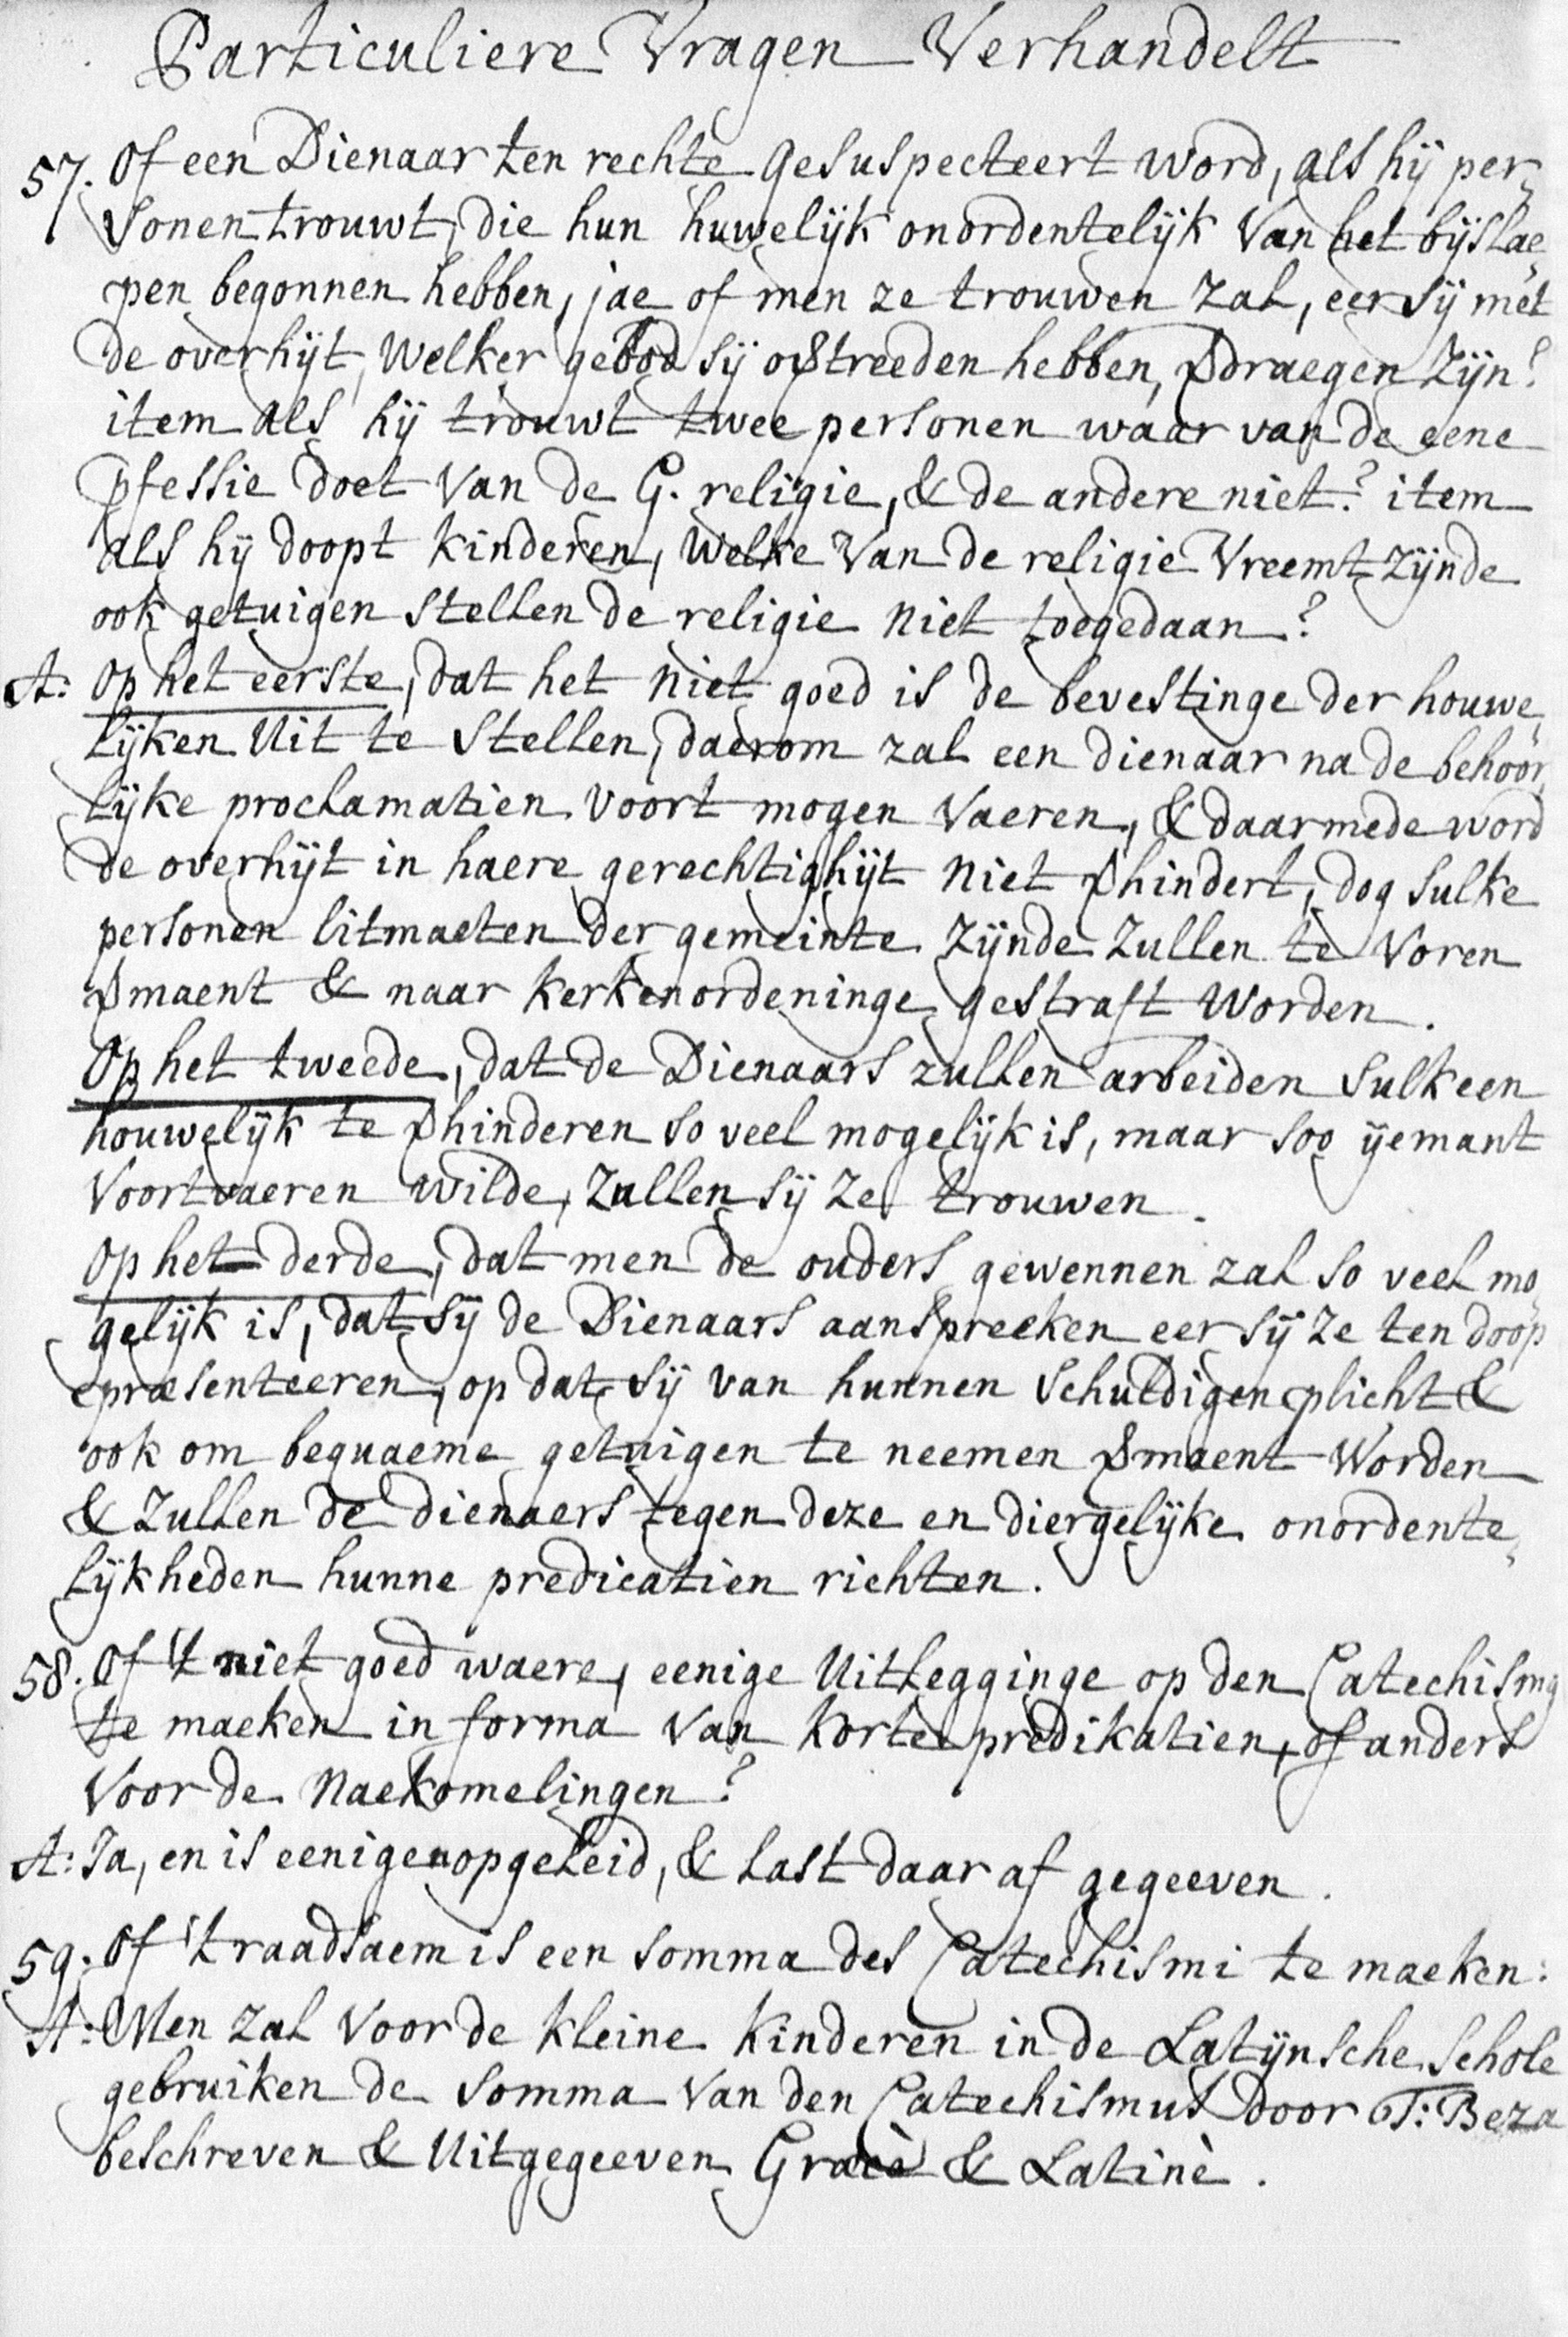 Particuliere Vragen Verhandelt
57. Of een Dienaar ten rechte gesuspecteert word, als hÿ per„
sonen trouwt, die hun huwelÿk onordentelÿk van het bÿslae„
pen begonnen hebben, jae of men ze trouwen zal, eer sÿ met
de overhÿt, welker gebod sÿ ovtreeden hebben, vdraegen zÿn?
item als hÿ trouwt twee personen waar van de eene
pfessie doet van de G. religie, & de andere niet? item
als hÿ doopt kinderen, welke van de religie vreemt zÿnde
ook getuigen stellen de religie niet toegedaan?
A: Op het eerste, dat het niet goed is de bevestinge der houwe„
lÿken uit te stellen, daerom zal een dienaar na de behoor„
lÿke proclamatien voort mogen vaeren, & daarmede word
de overhÿt in haere gerechtighÿt niet vhindert, dog sulke
personen litmaeten der gemeinte zÿnde zullen te voren
vmaent & naar kerkenordeninge gestraft worden.
Op het tweede, dat de Dienaars zullen arbeiden sulk een
houwelÿk te vhinderen so veel mogelÿk is, maar soo ÿemant
voortvaeren wilde, zullen sÿ ze trouwen.
Op het derde, dat men de ouders gewennen zal so veel mo„
gelÿk is, dat sÿ de Dienaars aanspreeken eer sÿ ze ten doop
præsenteeren, op dat sÿ van hunnen schuldigen plicht &
ook om bequaeme getuigen te neemen vmaent worden
& zullen de dienaers tegen deze en diergelÿke onordente„
lÿkheden hunne predicatien richten.
58. Of 't niet goed waere, eenige uitlegginge op den Catechismꝰ
te maeken in forma van korte predikatien, of anders
voor de naekomelingen?
A: Ja, en is eenigen opgeleid, & last daar af gegeeven.
59. Of 't raadsaem is een somma des Catechismi te maeken:
A: Men zal voor de kleine kinderen in de Latÿnsche schole
gebruiken de somma van den Catechismus door T: Beza
beschreven & uitgegeeven Græcè & Latinè.